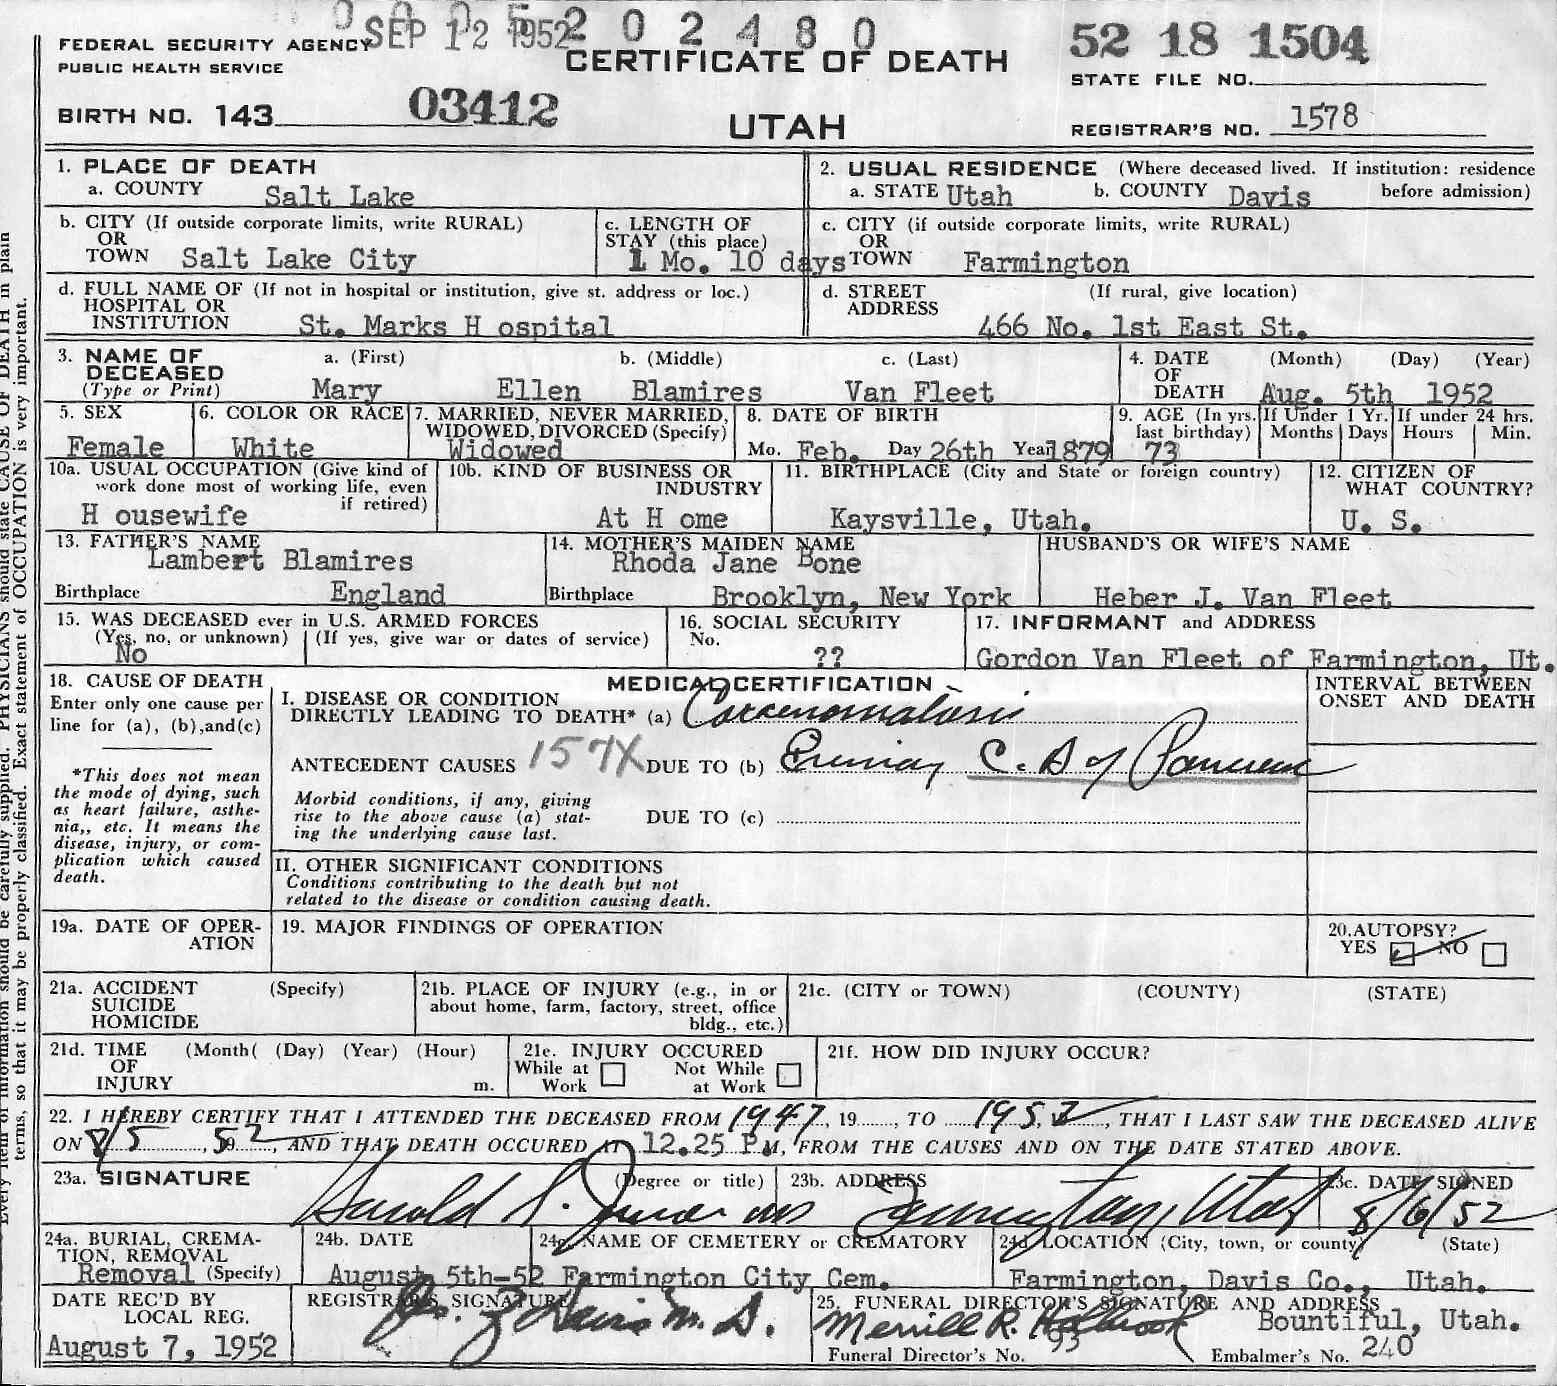 0 0 0 5 2 0 2 4 8 0
SEP 12 1952
52 18 1504
FEDERAL SECURITY AGENCY
PUBLIC HEALTH SERVICE
CERTIFICATE OF DEATH
STATE FILE NO.
BIRTH NO. 143 03412
UTAH
REGISTRAR'S NO. 1578
1. PLACE OF DEATH
a. COUNTY Salt Lake
2. USUAL RESIDENCE (Where deceased lived. If institution: residence
a. STATE Utah b. COUNTY Davis before admission)
b. CITY (If outside corporate limits, write RURAL)
OR
TOWN Salt Lake City
c. LENGTH OF
STAY (this place)
1 Mo. 10 days
c. CITY (if outside corporate limits, write RURAL)
OR
TOWN Farmington
d. FULL NAME OF (If not in hospital or institution, give st. address or loc.)
HOSPITAL OR
INSTITUTION St. Marks H ospital
d. STREET (If rural, give location)
ADDRESS
466 No. 1st East St.
3. NAME OF a. (First) b. (Middle) c. (Last)
DECEASED
(Type or Print) Mary Ellen Blamires Van Fleet
4. DATE (Month) (Day) (Year)
OF
DEATH Aug. 5th 1952
5. SEX
Female
6. COLOR OR RACE
White
7. MARRIED, NEVER MARRIED,
WIDOWED, DIVORCED (Specify)
Widowed
8. DATE OF BIRTH
Mo. Feb. Day 26th Year 1879
9. AGE (In yrs.
last birthday)
73
If Under 1 Yr.
Months Days
If under 24 hrs.
Hours Min.
10a. USUAL OCCUPATION (Give kind of
work done most of working life, even
if retired)
H ousewife
10b. KIND OF BUSINESS OR
INDUSTRY
At H ome
11. BIRTHPLACE (City and State or foreign country)
Kaysville, Utah.
12. CITIZEN OF
WHAT COUNTRY?
U. S.
13. FATHER'S NAME
Lambert Blamires
Birthplace England
14. MOTHER'S MAIDEN NAME
Rhoda Jane Bone
Birthplace Brooklyn, New York
HUSBAND'S OR WIFE'S NAME
Heber J. Van Fleet
15. WAS DECEASED ever in U.S. ARMED FORCES
(Yes, no, or unknown) (If yes, give war or dates of service)
No
16. SOCIAL SECURITY
No.
??
17. INFORMANT and ADDRESS
Gordon Van Fleet of Farmington, Ut.
18. CAUSE OF DEATH
Enter only one cause per
line for (a), (b),and(c)
*This does not mean
the mode of dying, such
as heart failure, asthe-
nia,, etc. It means the
disease, injury, or com-
plication which caused
death.
MEDICAL CERTIFICATION
I. DISEASE OR CONDITION
DIRECTLY LEADING TO DEATH* (a) Carcenomatosis
ANTECEDENT CAUSES 157X DUE TO (b) Primary C. A of Pancreas
Morbid conditions, if any, giving
rise to the above cause (a) stat-
ing the underlying cause last.
DUE TO (c)
INTERVAL BETWEEN
ONSET AND DEATH
II. OTHER SIGNIFICANT CONDITIONS
Conditions contributing to the death but not
related to the disease or condition causing death.
19a. DATE OF OPER-
ATION
19. MAJOR FINDINGS OF OPERATION
20. AUTOPSY?
YES NO
21a. ACCIDENT (Specify)
SUICIDE
HOMICIDE
21b. PLACE OF INJURY (e.g., in or
about home, farm, factory, street, office
bldg., etc.)
21c. (CITY or TOWN) (COUNTY) (STATE)
21d. TIME (Month( (Day) (Year) (Hour)
OF
INJURY m.
21e. INJURY OCCURED
While at Not While
Work at Work
21f. HOW DID INJURY OCCUR?
22. I HEREBY CERTIFY THAT I ATTENDED THE DECEASED FROM 1947, 19 TO 1952, THAT I LAST SAW THE DECEASED ALIVE
ON 8/5, 52, AND THAT DEATH OCCURED AT 12.25 P.M, FROM THE CAUSES AND ON THE DATE STATED ABOVE.
23a. SIGNATURE (Degree or title)
Harold
23b. ADDRESS
Farmington, Utah
23c. DATE SIGNED
8/6/52
24a. BURIAL, CREMA-
TION, REMOVAL
Removal (Specify)
24b. DATE
August 5th-52
24c. NAME OF CEMETERY or CREMATORY
Farmington City Cem.
24d LOCATION (City, town, or county) (State)
Farmington, Davis Co., Utah.
DATE REC'D BY
LOCAL REG.
August 7, 1952
REGISTRAR'S SIGNATURE
M. D.
25. FUNERAL DIRECTOR'S SIGNATURE AND ADDRESS
Merrill R. Holbrook Bountiful, Utah.
Funeral Director's No. 93 Embalmer's No. 240
Every item of information should be carefully supplied. PHYSICIANS should state CAUSE OF DEATH in plain
terms, so that it may be properly classified. Exact statement of OCCUPATION is very important.